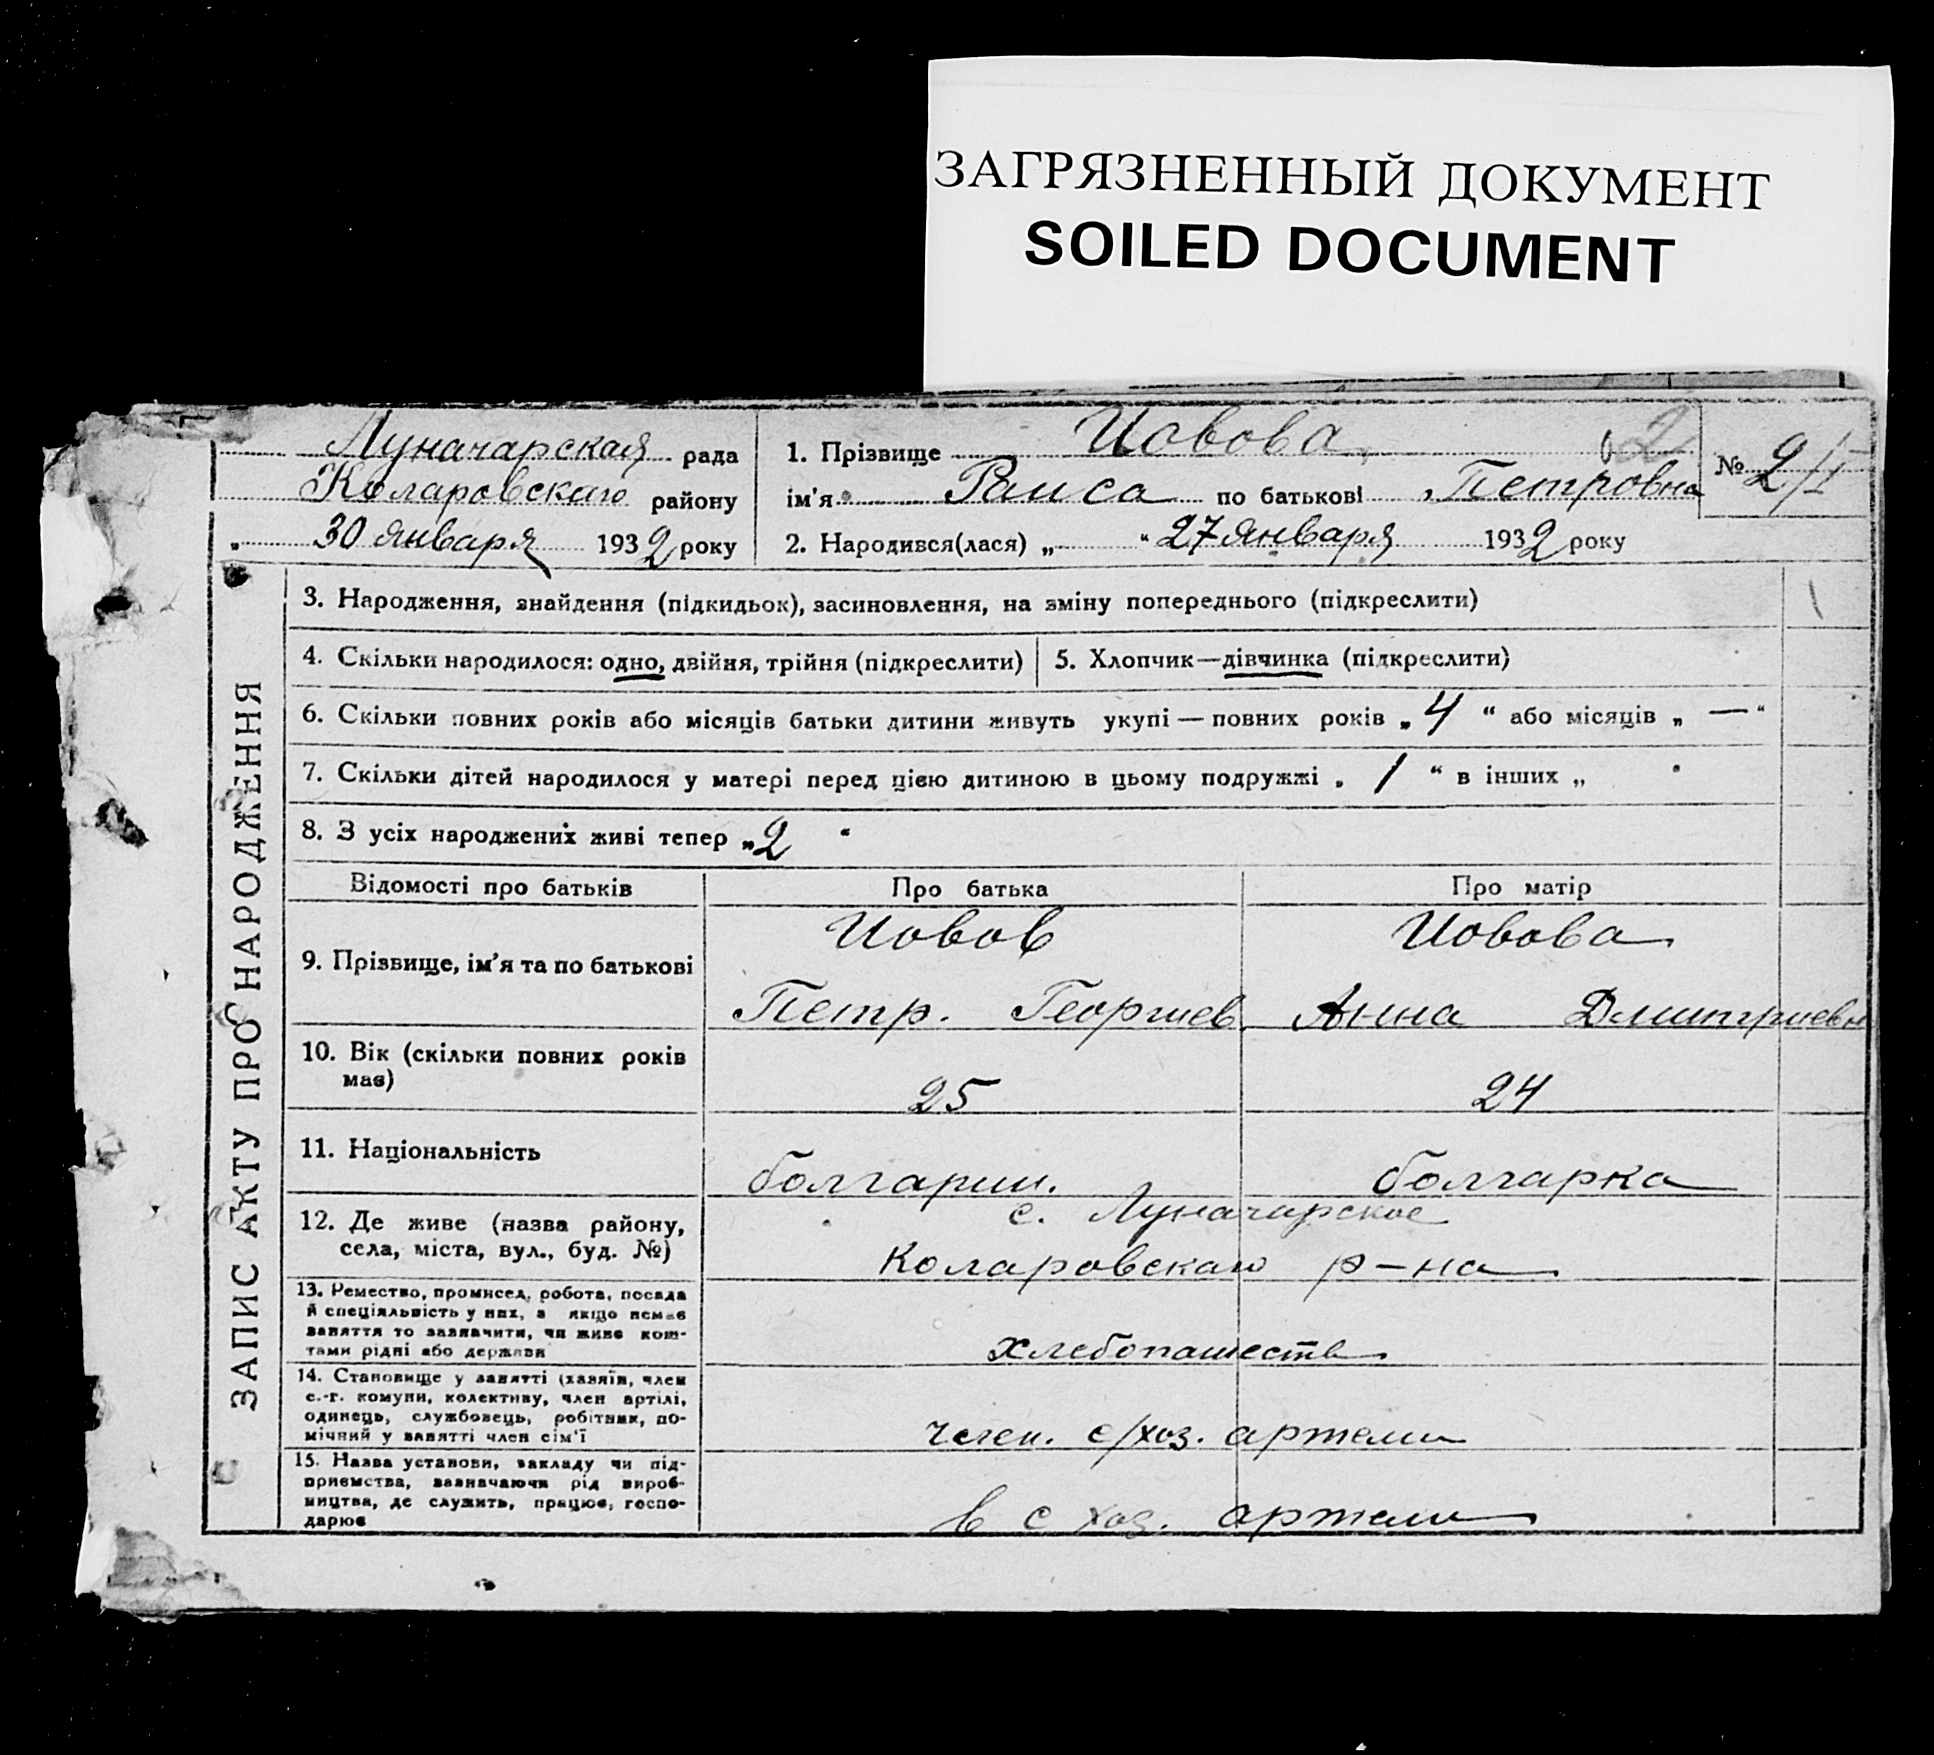 ЗАГРЯЗНЕННЫЙ ДОКУМЕНТ
SOILED DOCUMENT
Луначарская рада
Коларовскаго району
„ 30 января 1932 року
1. Прізвище Иовова
ім'я Раиса по батькові Петровна
2. Народився(лася) „ “ 27 января 1932 року
№ 2/I
2
ЗАПИС АКТУ ПРО НАРОДЖЕННЯ
3. Народження, знайдення (підкидьок), засиновлення, на зміну попереднього (підкреслити)
4. Скільки народилося: одно, двійня, трійня (підкреслити) 5. Хлопчик—дівчинка (підкреслити)
6. Скільки повних років або місяців батьки дитини живуть укупі — повних років „ 4 “ або місяців „ — “
7. Скільки дітей народилося у матері перед цією дитиною в цьому подружжі „ 1 “ в інших „ “
8. З усіх народжених живі тепер „ 2 “
Відомості про батьків Про батька Про матір
9. Прізвище, ім'я та по батькові
Иовов Иовова
Петр. Георгиев. Анна Дмитриевн
10. Вік (скільки повних років
має)
25 24
11. Національність
болгарин. болгарка
12. Де живе (назва району,
села, міста, вул., буд. №)
с. Луначарское
Коларовскаго р-на
13. Ремество, промисел, робота, посада
й спеціяльність у них, а якщо немає
заняття то зазначити, чи живе кош-
тами рідні або держави
хлебопашеств
14. Становище у занятті (хазяїн, член
с.-г. комуни, колективу, член артілі,
одинець, службовець, робітник, по-
мічний у занятті член сім'ї
член. с/хоз. артели
15. Назва установи, закладу чи під-
приємства, зазначаючи рід вироб-
ництва, де служить, працює, госпо-
дарює
в с хоз. артели